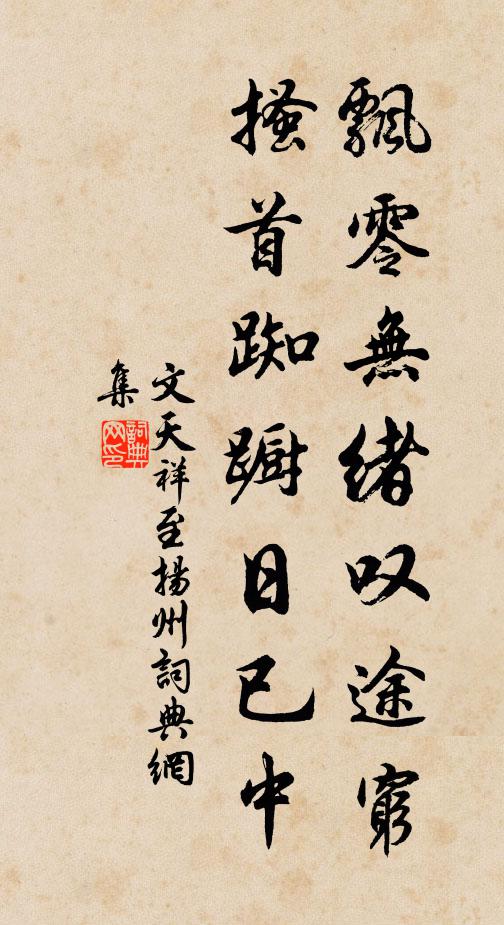 飄零無緒叹途窮
搔首踟蹰日已中
文天祥至揚州詞典網
集
詞典
网印